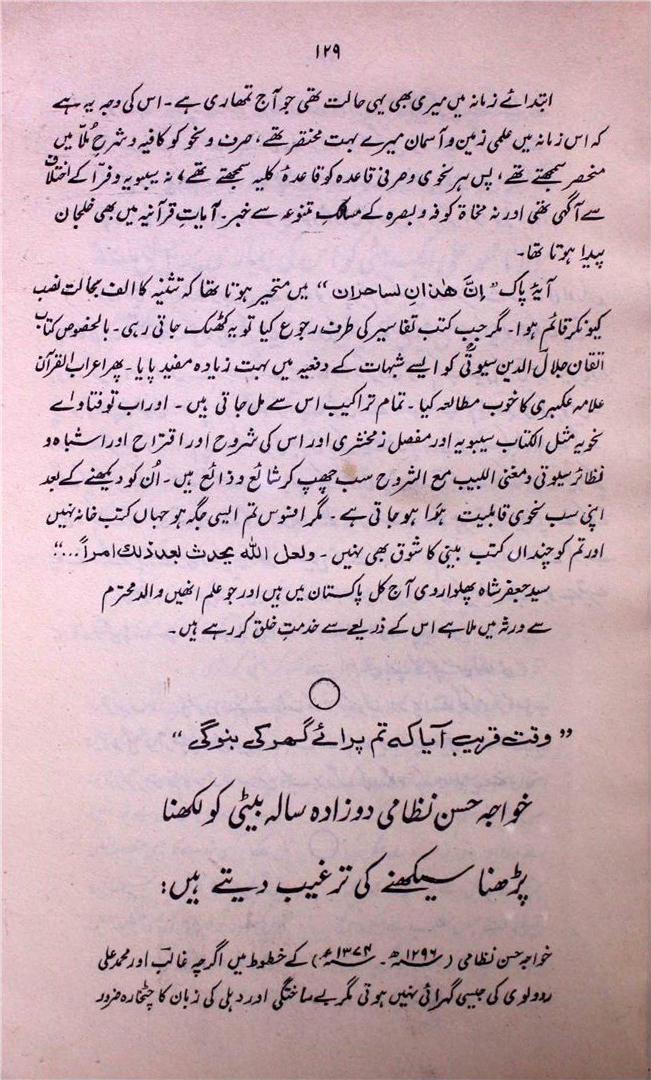 ۱۲۹
ابتدائے زمانہ میں میری بھی یہی حالت تھی جو آج تمھاری ہے۔ اس کی وجہ یہ ہے
کہ اس زمانہ میں علمی زمین و آسمان میرے بہت مختصر تھے، صرف و نحو کو کافیہ و شرح مُلّا میں
منحصر سمجھتے تھے، پس ہر نحوی و صرفی قاعدہ کو قاعدۂ کلیہ سمجھتے تھے، نہ سیبویہ و فرّا کے اختلاف
سے آگہی تھی اور نہ نحاۃ کوفہ و بصرہ کے مسالکِ متنوعہ سے خبر۔ آیاتِ قرآنیہ میں بھی خلجان
پیدا ہوتا تھا۔
آیۂ پاک ”اِنَّ ھٰذانِ لساحران“ میں متحیر ہوتا تھا کہ تثنیہ کا الف بحالت نصب
کیونکر قائم ہوا۔ مگر جب کتب تفاسیر کی طرف رجوع کیا تو یہ کھٹک جاتی رہی۔ بالخصوص کتاب
اتقان جلال الدین سیوطیؒ کو ایسے شبہات کے دفعیہ میں بہت زیادہ مفید پایا۔ پھر اعراب القرآن
علامہ عکبری کا خوب مطالعہ کیا۔ تمام تراکیب اس سے مل جاتی ہیں۔ اور اب تو فتاوے
نحویہ مثل الکتاب سیبویہ اور مفصل زمخشری اور اس کی شروح اور اقتراح اور اشباہ و
نظائر سیوطی و مغنی اللبیب مع الشروح سب چھپ کر شائع و ذائع ہیں۔ اُن کو دیکھنے کے بعد
اپنی سب نحوی قابلیت ہَوا ہو جاتی ہے۔ مگر افسوس تم ایسی جگہ ہو جہاں کتب خانہ نہیں
اور تم کو چنداں کتب بینی کا شوق بھی نہیں۔ ولعل اللہ یحدث بعد ذلك امراً...“
سید جعفر شاہ پھلواروی آج کل پاکستان میں ہیں اور جو علم انھیں والد محترم
سے ورثہ میں ملا ہے اس کے ذریعے سے خدمتِ خلق کر رہے ہیں۔
”وقت قریب آیا کہ تم پرائے گھر کی بنو گی“
خواجہ حسن نظامی دوزادہ سالہ بیٹی کو لکھنا
پڑھنا سیکھنے کی ترغیب دیتے ہیں:
خواجہ حسن نظامی (۱۲۹۶ھ۔ ۱۳۷۴ھ) کے خطوط میں اگرچہ غالب اور محمد علی
ردولوی کی جیسی گہرائی نہیں ہوتی مگر بے ساختگی اور دہلی کی زبان کا چٹخارہ ضرور